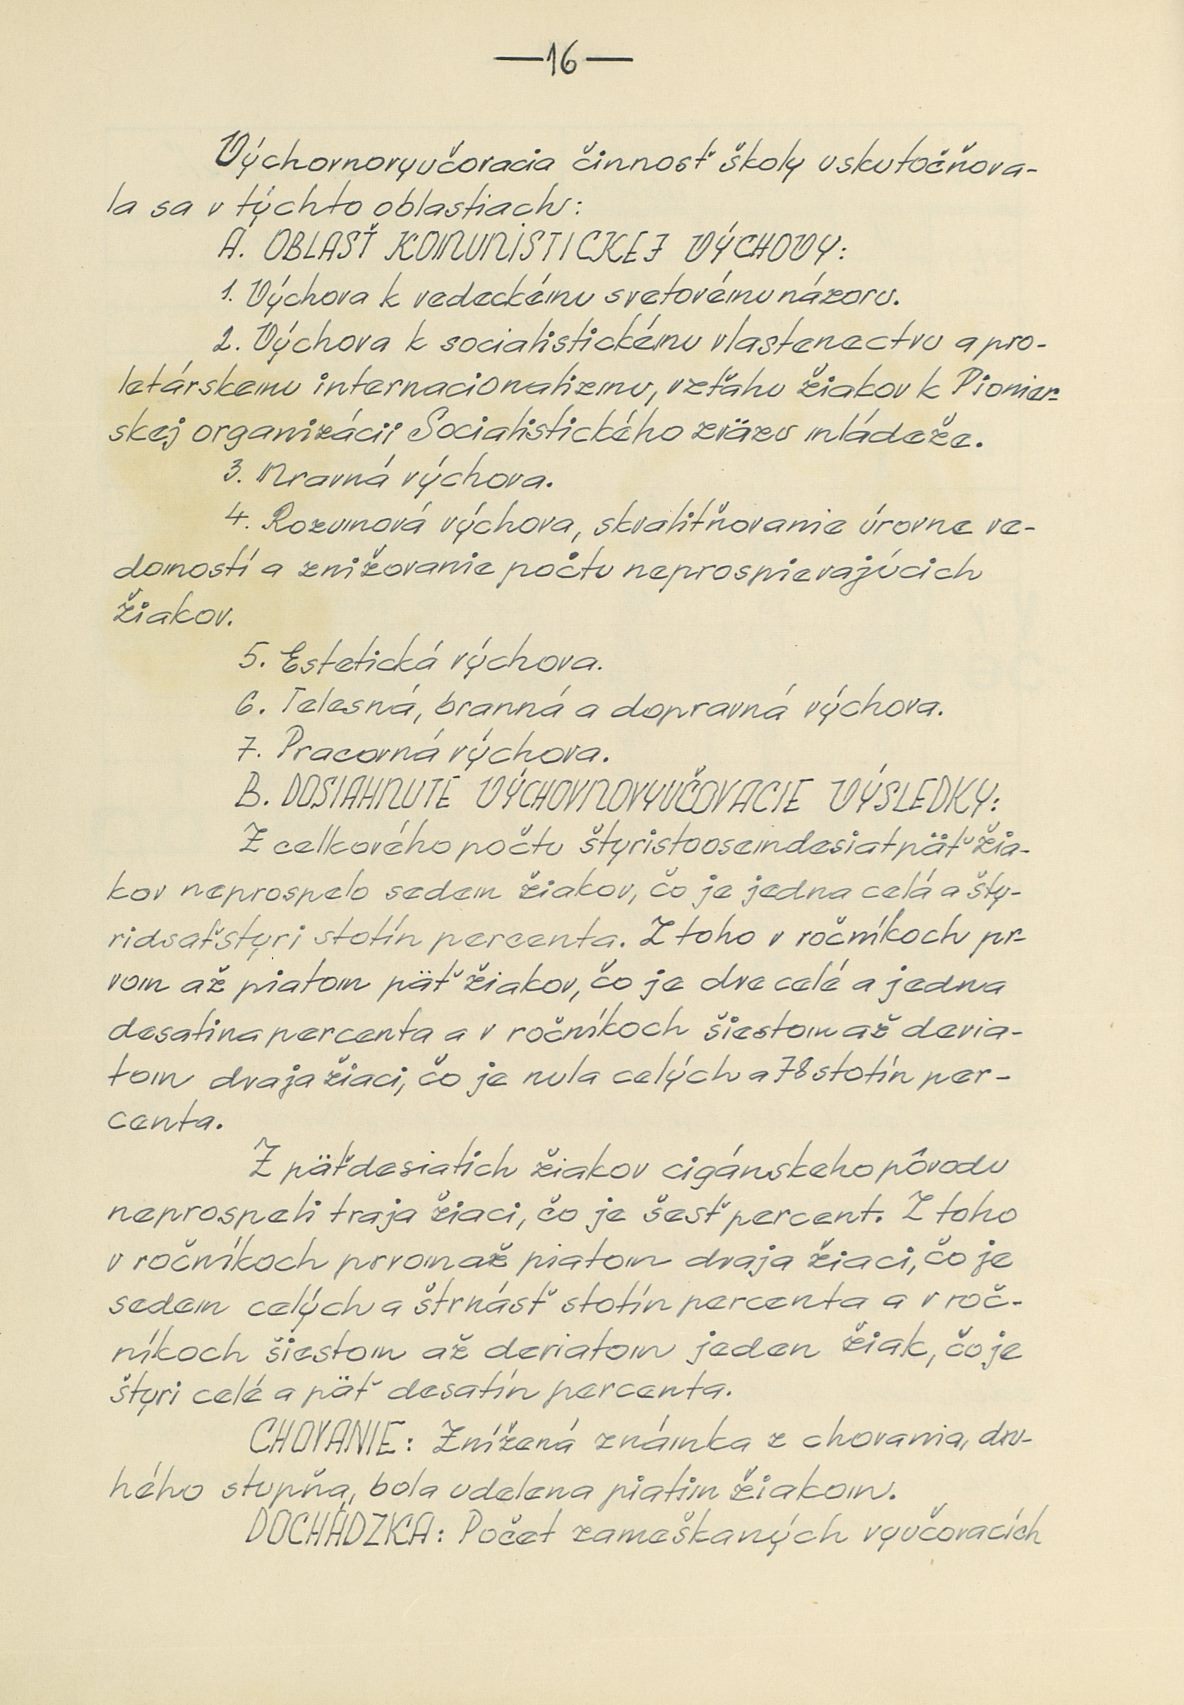 —16—
Výchovnovyučovacia činnosť školy uskutočňova-
la sa v týchto oblastiach:
A. OBLASŤ KOMUNISTICKEJ VÝCHOVY:
1. Výchova k vedeckému svetovému názoru.
2. Výchova k socialistickému vlastenectvu a pro-
letárskemu internacionalizmu, vzťahu žiakov k Pionier-
skej organizácii Socialistického zväzu mládeže.
3. Mravná výchova.
4. Rozumová výchova, skvalitňovanie úrovne ve-
domostí a znižovanie počtu neprospievajúcich
žiakov.
5. Estetická výchova.
6. Telesná, branná a dopravná výchova.
7. Pracovná výchova.
B. DOSIAHNUTÉ VÝCHOVNOVYUČOVACIE VÝSLEDKY:
Z celkového počtu štyristoosemdesiatpäť žia-
kov neprospelo sedem žiakov, čo je jedna celá a šty-
ridsaťstyri stotín percenta. Z toho v ročníkoch pr-
vom až piatom päť žiakov, čo je dve celé a jedna
desatina percenta a v ročníkoch šiestom až devia-
tom dvaja žiaci, čo je nula celých a 78 stotín per-
centa.
Z päťdesiatich žiakov cigánskeho pôvodu
neprospeli traja žiaci, čo je šesť percent. Z toho
v ročníkoch prvom až piatom dvaja žiaci, čo je
sedem celých a štrnásť stotín percenta a v roč-
níkoch šiestom až deviatom jeden žiak, čo je
štyri celé a päť desatín percenta.
CHOVANIE: Znížená známka z chovania, dru-
hého stupňa, bola udelena piatim žiakom.
DOCHÁDZKA: Počet zameškaných vyučovacích